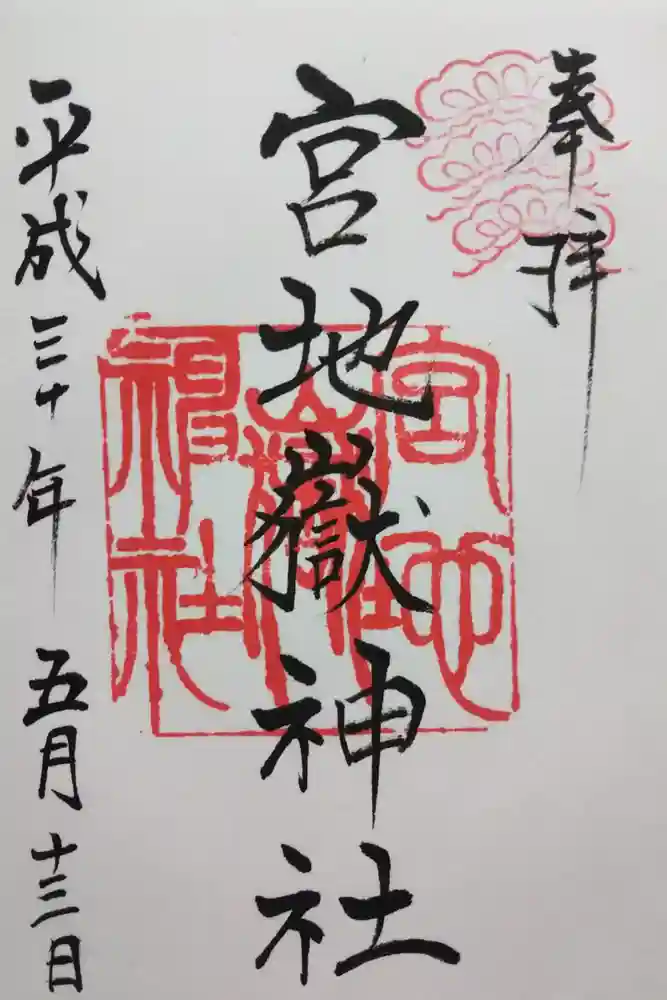 奉拝
宮地嶽神社
宮地嶽神社
平成三十年五月十三日